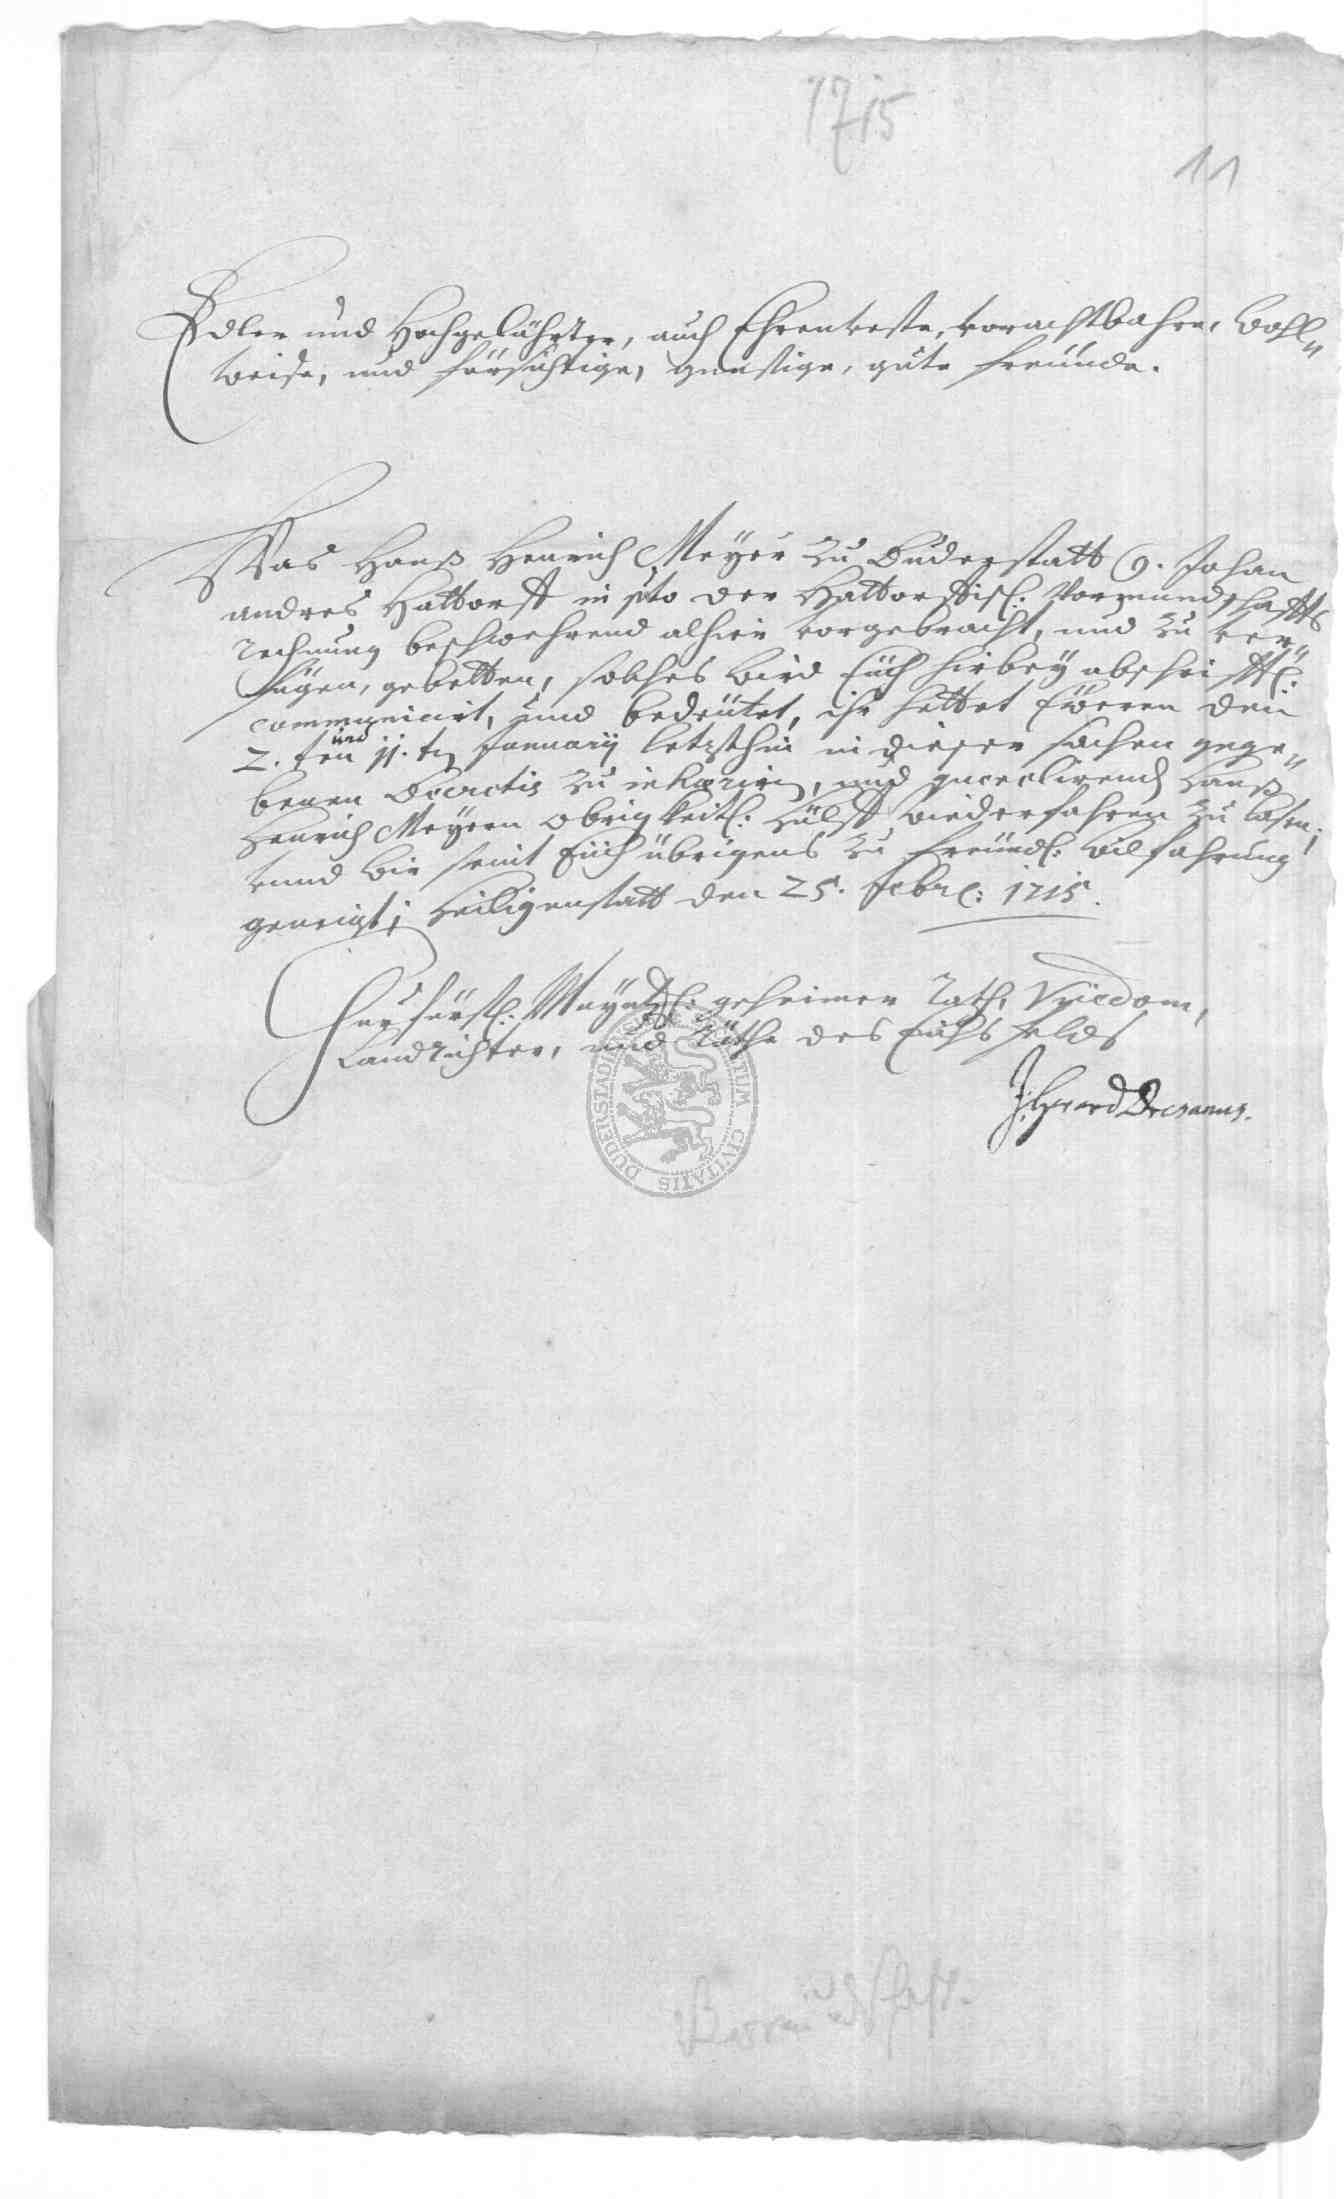 1715
11
Edler und Hochgelährter, auch Ehrenveste, vorachtbahre, wohl„
weise, und fürsichtige, günstige, gute freünde.
Was Hanß Henrich Meyer zu Duderstatt C. Johan
andres Hattorff in pto der Hattorffisch: Vormundschaffts
rechnung beschwehrend alhier vorgebracht, und zu ver„
fügen, gebetten, solches wird Eüch hirbey abschrifftl:
communicirt, und bedeütet, ihr hettet Eweren den
2.ten und 11.ten January letzsthin in dieser sachen gege„
benen Decretis zu inhæriren, und Hanß
Henrich Meyern obrigkeitl: hülff wiederfahren zu lasen;
unnd wir seint Eüch übrigens zu freündl: wilfahrung
geneigt; Heiligenstatt den 25. Febr: 1715.
Churfürstl: Mayntzl: geheimer rath, Vicedom,
Landrichter, und Räthe des Eichsfelds
DUDERSTADIENSIS CIVITATIS